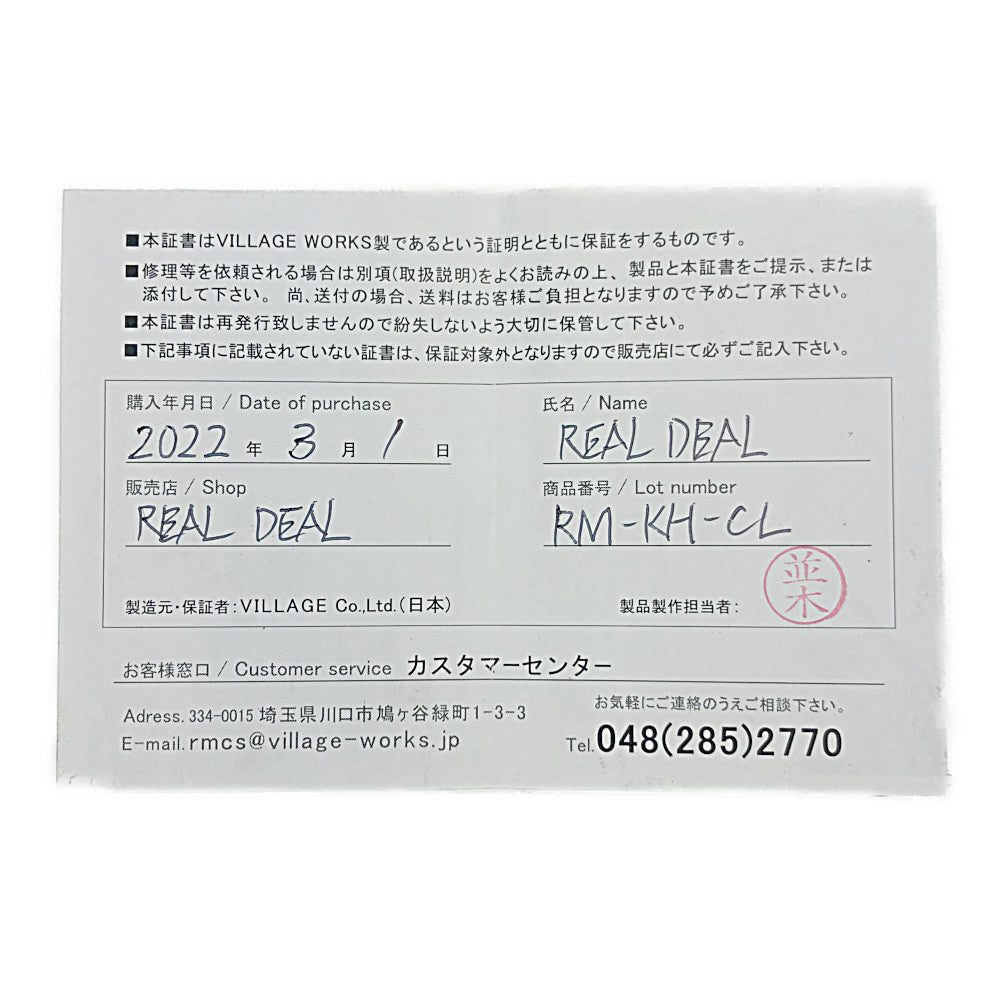 ■本証書はVILLAGE WORKS製であるという証明とともに保証をするものです。
■修理等を依頼される場合は別項(取扱説明)をよくお読みの上、製品と本証書をご提示、または
添付して下さい。 尚、送付の場合、送料はお客様ご負担となりますので予めご了承下さい。
■本証書は再発行致しませんので紛失しないよう大切に保管して下さい。
■下記事項に記載されていない証書は、保証対象外となりますので販売店にて必ずご記入下さい。
購入年月日 / Date of purchase
2022 年 3 月 1 日
氏名 / Name
REAL DEAL
販売店 / Shop
REAL DEAL
商品番号 / Lot number
RM-KH-CL
製造元・保証者:VILLAGE Co.,Ltd.(日本)
製品製作担当者:
並木
お客様窓口 / Customer service カスタマーセンター
Adress. 334-0015 埼玉県川口市鳩ヶ谷緑町1-3-3
E-mail. rmcs@village-works.jp
お気軽にご連絡のうえご相談下さい。
Tel. 048(285)2770